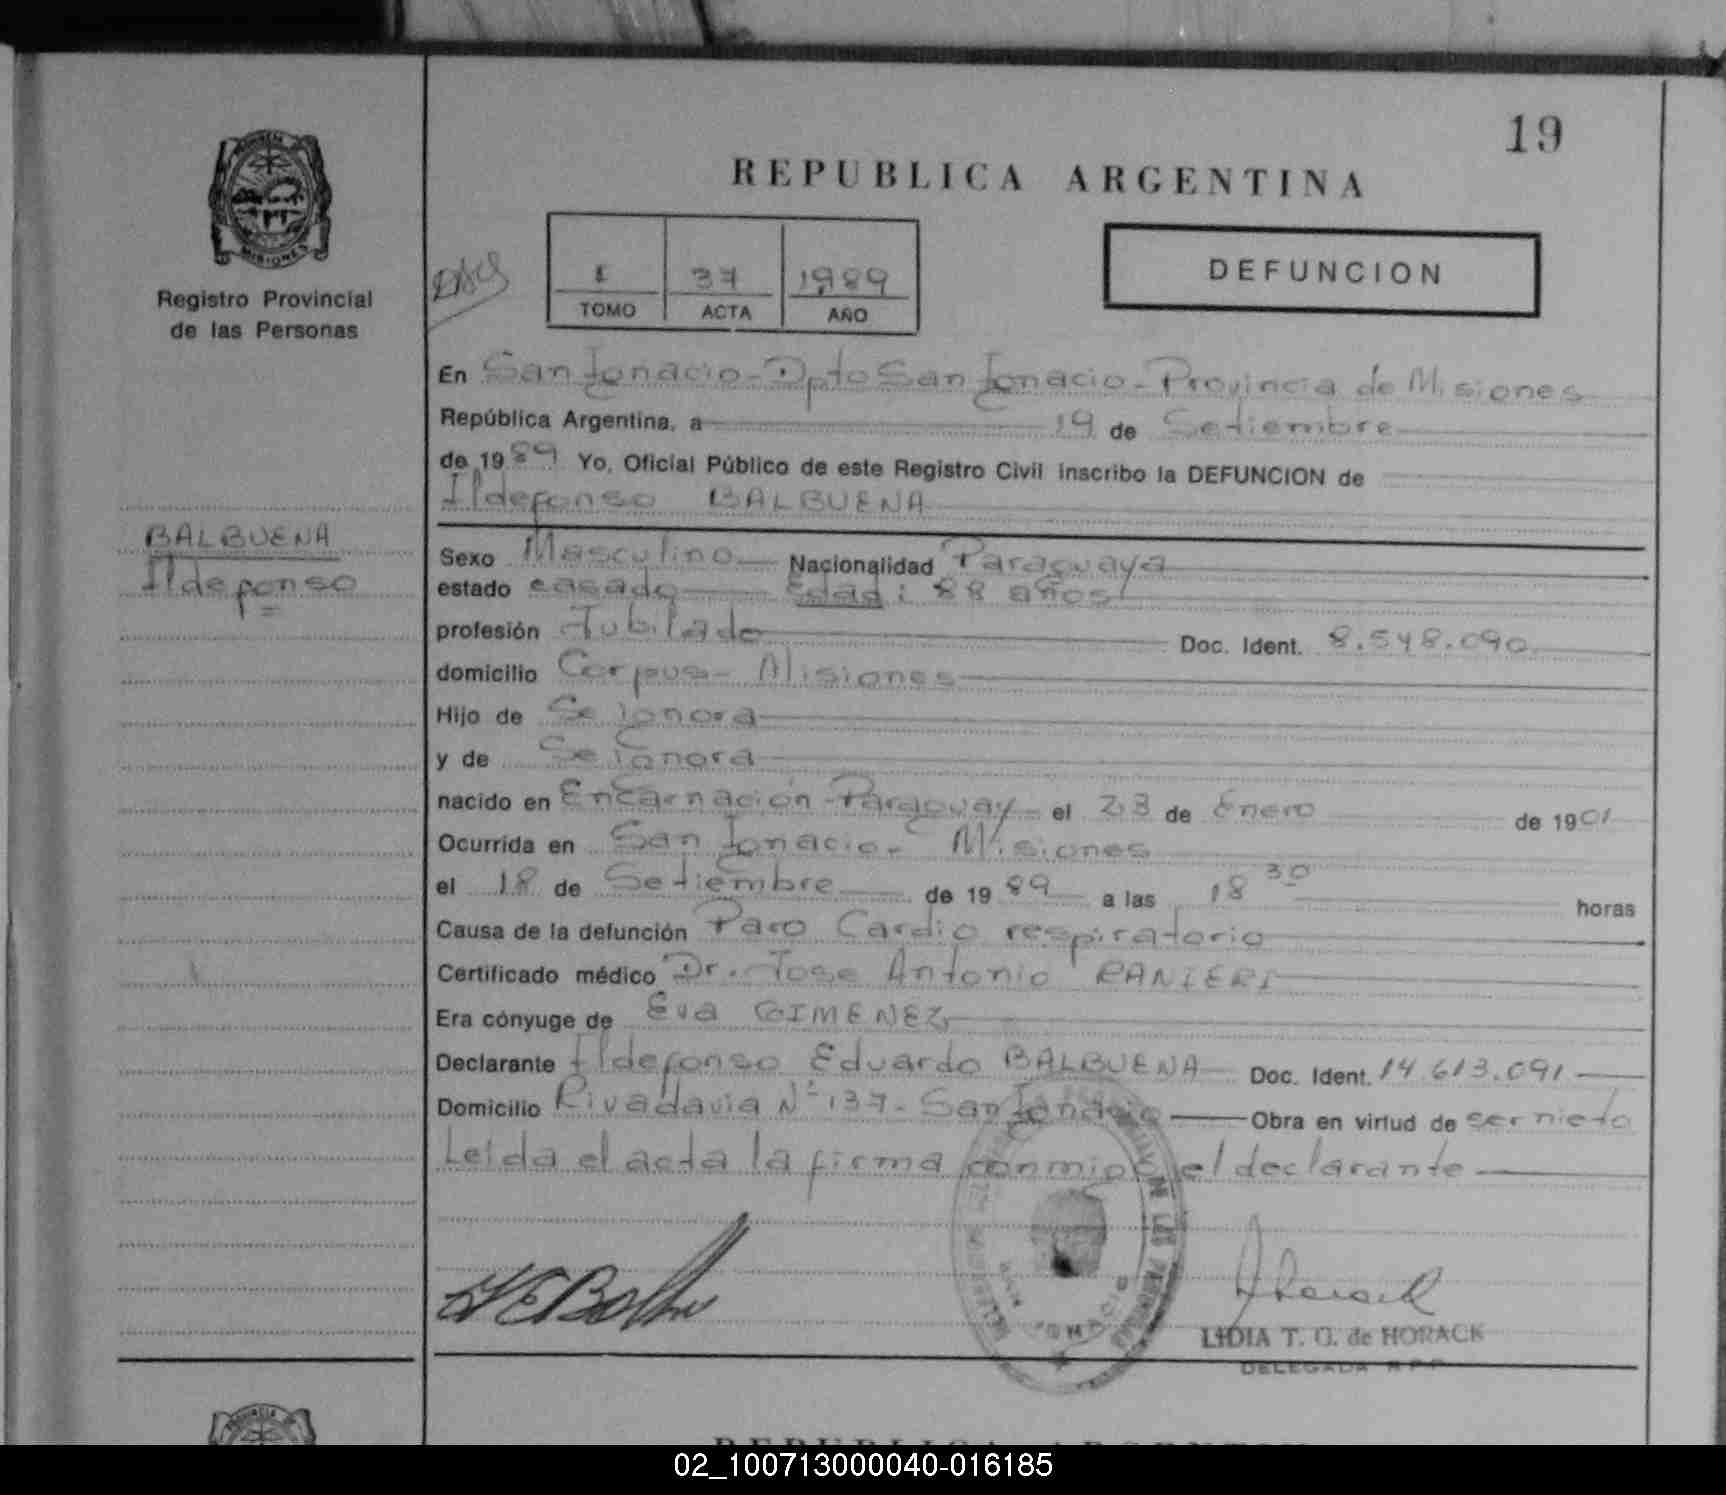 19
REPUBLICA ARGENTINA
PROVINCIA DE
MISIONES
Registro Provincial
de las Personas
I 37 1989
TOMO ACTA AÑO
DEFUNCION
En San Ignacio - Dpto San Ignacio - Provincia de Misiones
República Argentina, a 19 de Setiembre
de 1989 Yo, Oficial Público de este Registro Civil inscribo la DEFUNCION de
Ildefonso BALBUENA
BALBUENA
Ildefonso
Sexo Masculino Nacionalidad Paraguaya
estado casado Edad: 88 años
profesión Jubilado Doc. Ident. 8.548.090
domicilio Corpus - Misiones
Hijo de Se ignora
y de Se ignora
nacido en Encarnación - Paraguay el 23 de Enero de 1901
Ocurrida en San Ignacio - Misiones
el 18 de Setiembre de 1989 a las 18 30 horas
Causa de la defunción Paro Cardio respiratorio
Certificado médico Dr. Jose Antonio RANIERI
Era cónyuge de Eva GIMENEZ
Declarante Ildefonso Eduardo BALBUENA Doc. Ident. 14.613.091
Domicilio Rivadavia Nº 137 - San Ignacio Obra en virtud de ser nieto
Leída el acta la firma conmigo el declarante
LIDIA T. G. de HORACK
DELEGADA R P P
REPUBLICA ARGENTINA
02_100713000040-016185